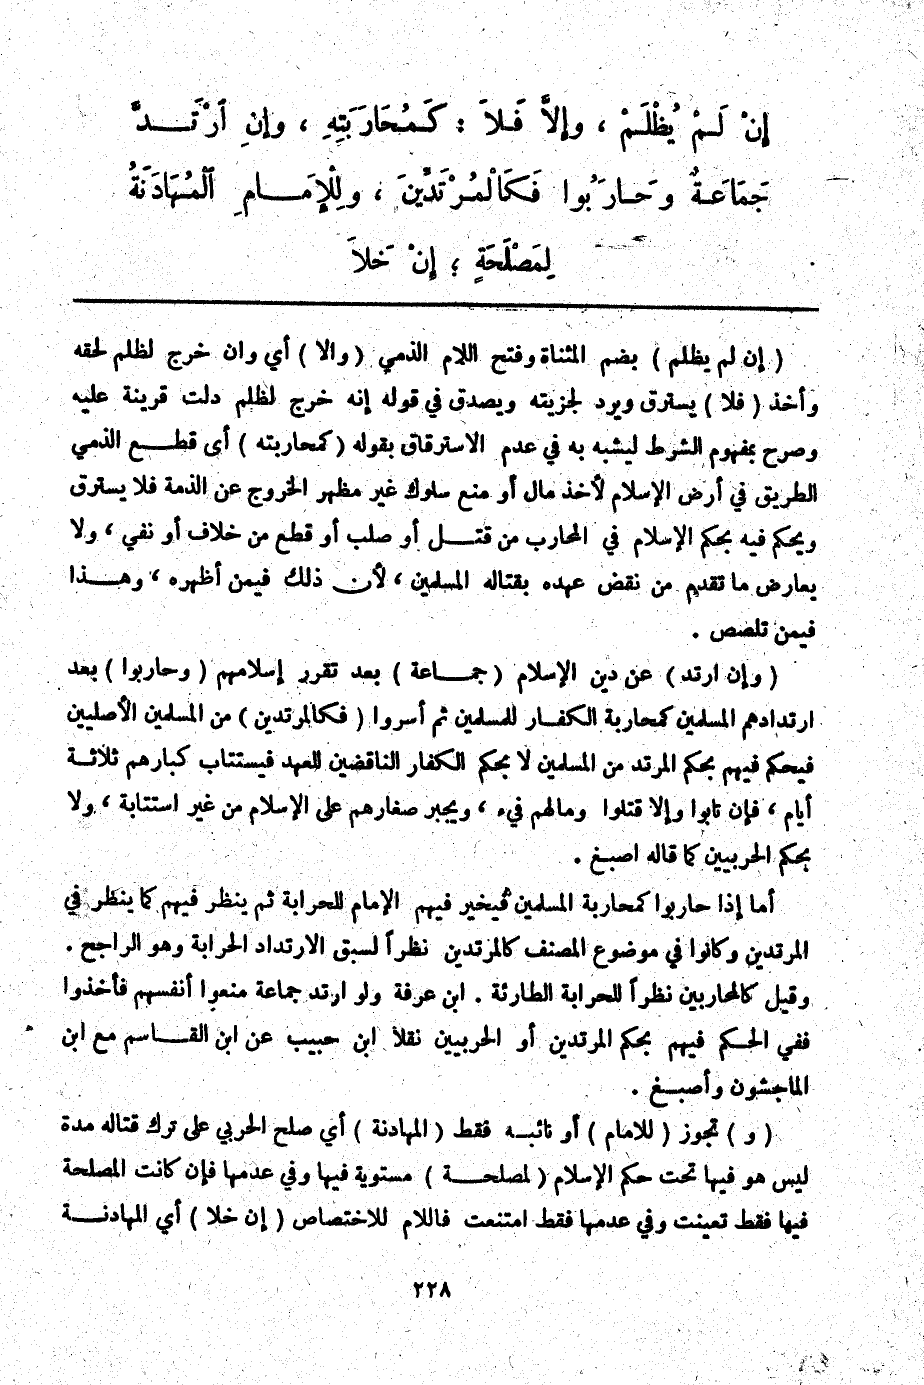 إِنْ لَمْ يُظْلَمْ ، وإِلاَّ فَلاَ : كَمُحَارَبَتِهِ ، وإِنِ ٱرْتَدَّ
جَمَاعَةٌ وحَارَبُوا فَكَالْمُرْتَدِّينَ ، وللْإِمَامِ ٱلْمُهَادَنَةُ
لِمَصْلَحَةٍ ؛ إِنْ خَلاَ
( إن لم يظلم ) بضم المثناة وفتح اللام الذمي ( والا ) أي وان خرج لظلم لحقه
وأخذ ( فلا ) يسترق ويرد لجزيته ويصدق في قوله إنه خرج لظلم دلت قرينة عليه
وصرح بمفهوم الشرط ليشبه به في عدم الاسترقاق بقوله ( كمحاربته ) أى قطع الذمي
الطريق في أرض الإسلام لأخذ مال أو منع سلوك غير مظهر الخروج عن الذمة فلا يسترق
ويحكم فيه بحكم الإسلام في المحارب من قتل أو صلب أو قطع من خلاف أو نفي ، ولا
يعارض ما تقدم من نقض عهده بقتاله المسلمين ، لأن ذلك فيمن أظهره ، وهذا
فيمن تلصص .
( وإن ارتد ) عن دين الإسلام ( جماعة ) بعد تقرر إسلامهم ( وحاربوا ) بعد
ارتدادهم المسلمين كمحاربة الكفار للمسلمين ثم أسروا ( فكالمرتدين ) من المسلمين الأصليين
فيحكم فيهم بحكم المرتد من المسلمين لا بحكم الكفار الناقضين للعهد فيستتاب كبارهم ثلاثة
أيام ، فإن تابوا وإلا قتلوا ومالهم فيء ، ويجبر صغارهم على الإسلام من غير استتابة ، ولا
بحكم الحربيين كما قاله اصبغ .
أما إذا حاربوا كمحاربة المسلمين فيخير فيهم الإمام للحرابة ثم ينظر فيهم كما ينظر في
المرتدين وكانوا في موضوع المصنف كالمرتدين نظراً لسبق الارتداد الحرابة وهو الراجح .
وقيل كالمحاربين نظراً للحرابة الطارئة . ابن عرفة ولو ارتد جماعة منعوا أنفسهم فأخذوا
ففي الحكم فيهم بحكم المرتدين أو الحربيين نقلا ابن حبيب عن ابن القاسم مع ابن
الماجشون وأصبغ .
( و ) تجوز ( للامام ) أو نائبه فقط ( المهادنة ) أي صلح الحربي على ترك قتاله مدة
ليس هو فيها تحت حكم الإسلام ( لمصلحة ) مستوية فيها وفي عدمها فإن كانت المصلحة
فيها فقط تعينت وفي عدمها فقط امتنعت فاللام للاختصاص ( إن خلا ) أي المهادنة
٢٢٨